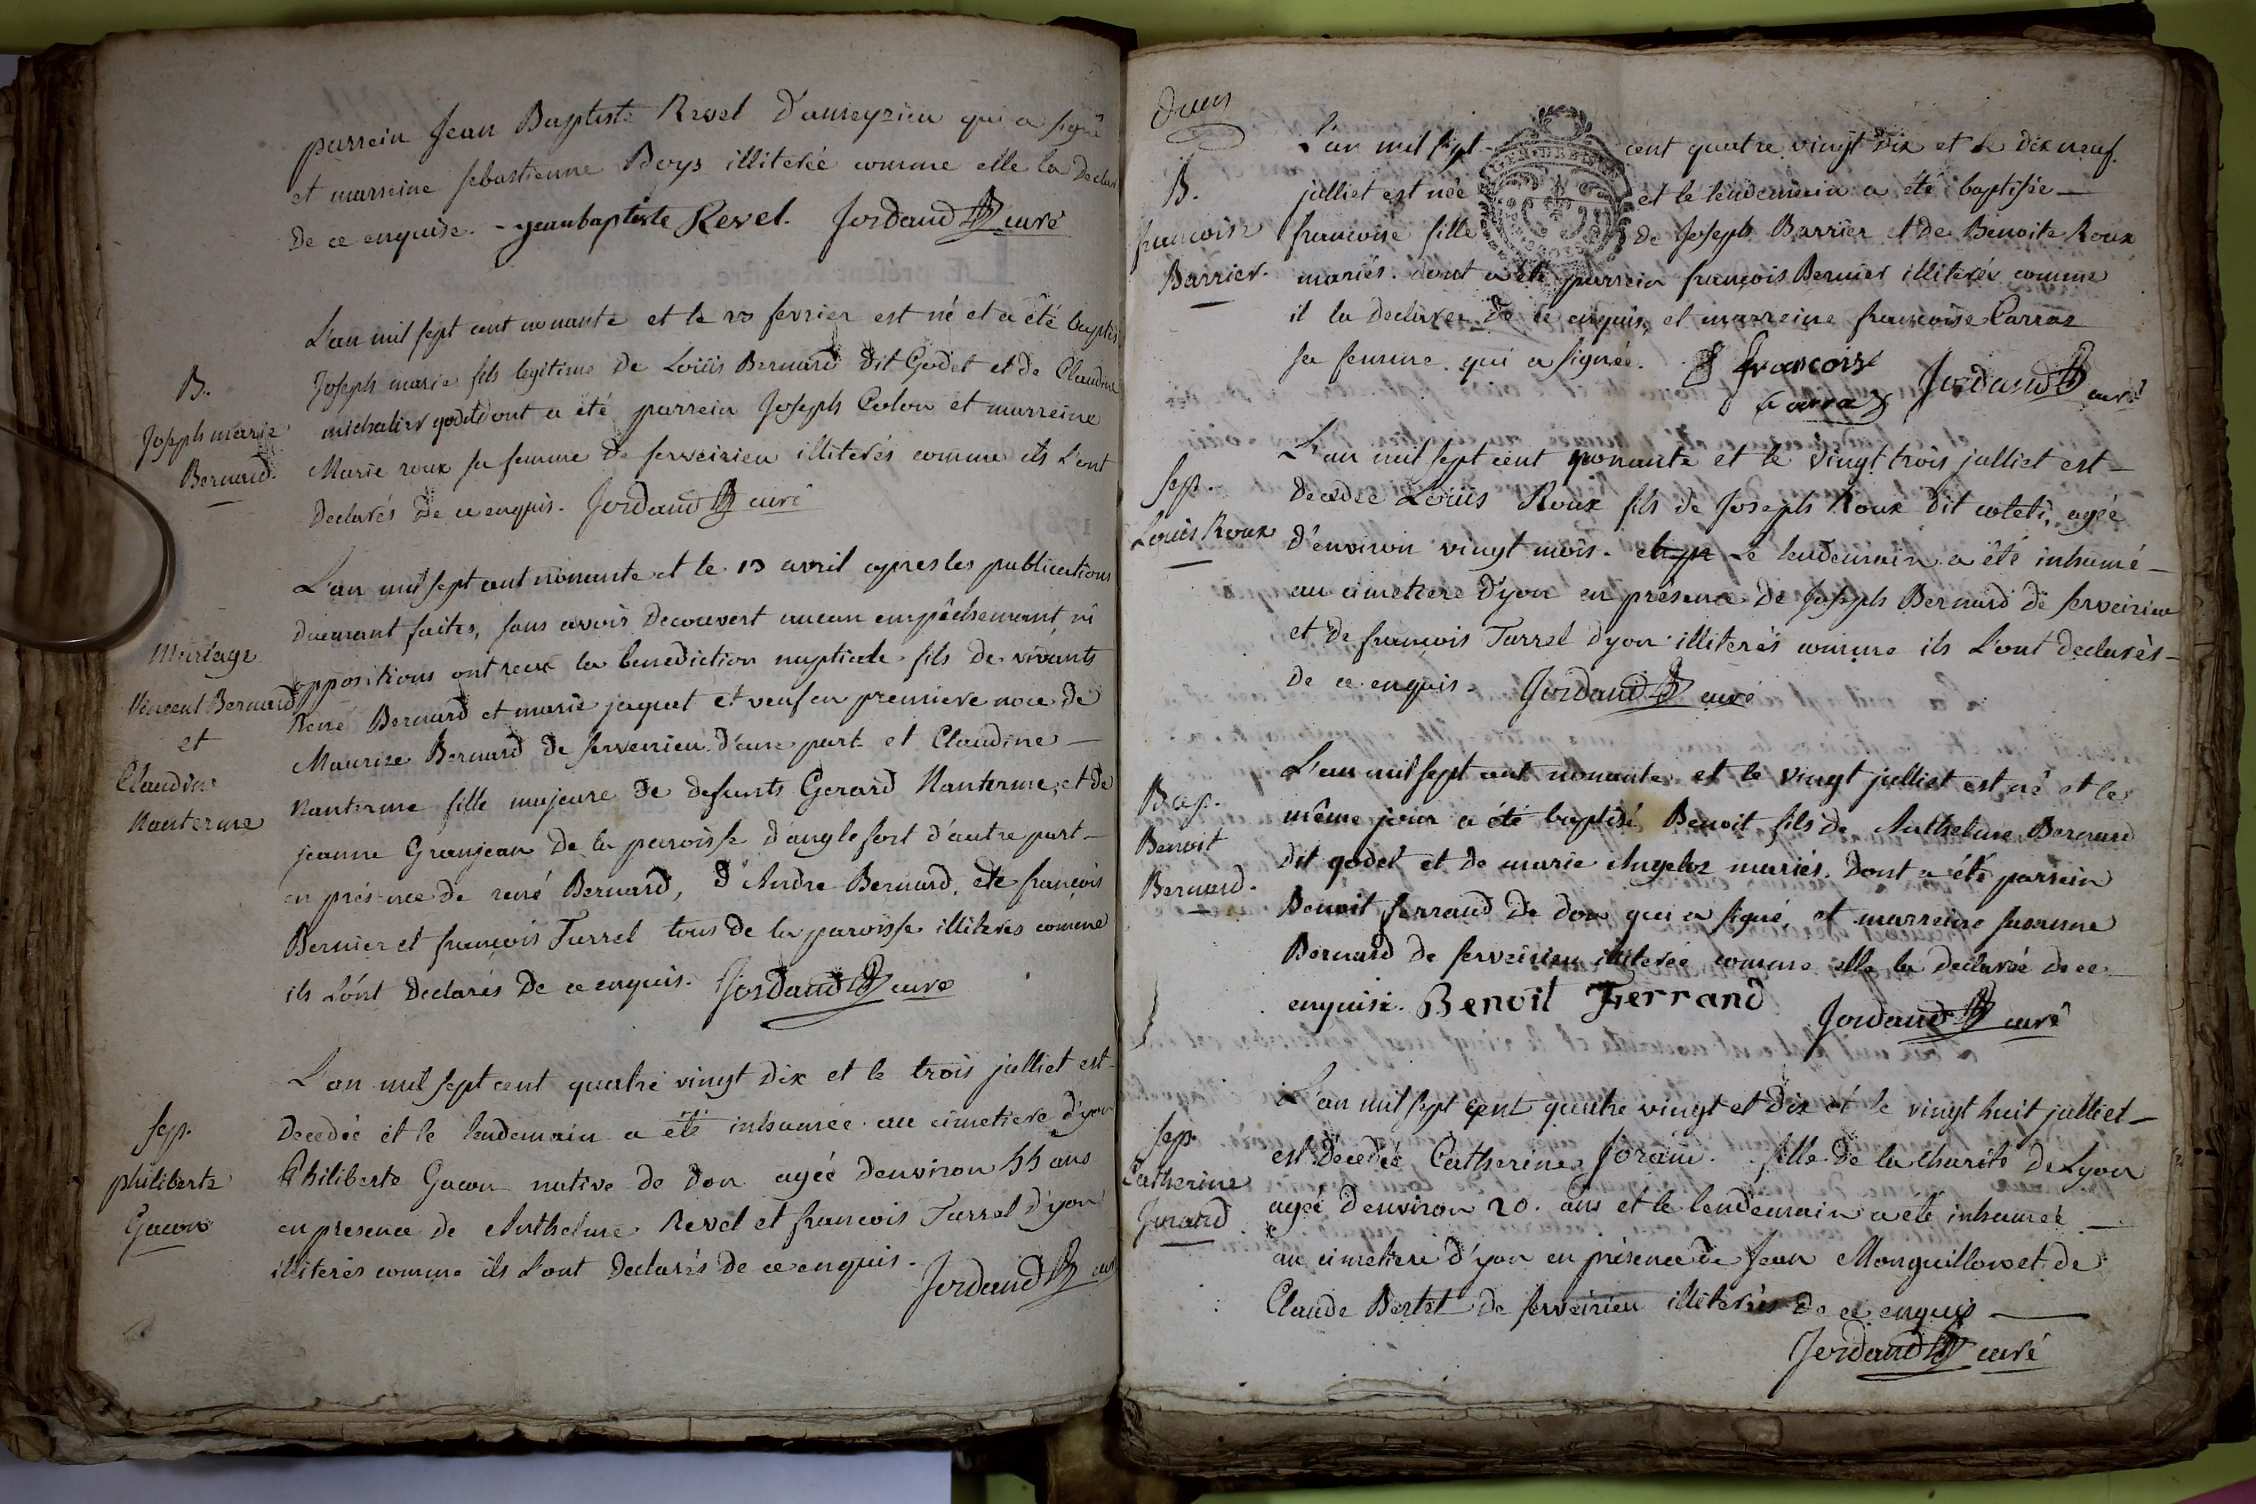 parrein Jean Baptiste Revel D'ameyzieu qui a signé
et marreine sebastienne Boys illiterée comme elle la Declaré
De ce enquise. - jeanbaptiste Revel. Jordand curé
B.
Joseph marie
Bernard.
L'an mil sept cent nonante et le 20 fevrier est né et a été baptisé
Joseph marie fils legitime de Loüis Bernard Dit Godet et de Claudine
michalier godet dont a été parrein Joseph Colon et marreine
Marie roux sa femme de serveirieu illiterés comme ils L'ont
Declarés De ce enquis. Jordand curé
Mariage
Vincent Bernard
et
Claudine
Nanterme
L'an mil sept cent nonante et le 13 avril apres les publications
duëmant faites, sans avoir Decouvert aucun empêchemant, ni
oppositions ont reçu la benediction nuptiale fils de vivants
René Bernard et marie jaquet et veuf en premiere noce de
Maurize Bernard De serveirieu d'une part et Claudine
Nanterme fille majeure De defunts Gerard Nanterme, et de
jeanne Granjean De la paroisse d'anglefort d'autre part
en présence de rené Bernard, D'Andre Bernard, ete françois
Bernier et françois Turrel tous de la paroisse illiteres comme
ils L'ont Declarés De ce enquis. Jordand curé
sep.
philiberte
Gacon
L'an mil sept cent quatre vingt Dix et le trois julliet est
Decedée et le lendemain a été inhumée au cimetiere d'yon
Philiberte Gacon native de Don agée denviron 55 ans
en presence de Anthelme Revel et francois Turrel D'yon
illiterés comme ils L'ont Declarés De ce enquis.
Jordand curé
Deux
B.
francoise
Barrier.
L'an mil sept cent quatre vingt Dix et le Dix neuf
julliet est née et le lendemain a été baptisée
francoise fille de Joseph Barrier et de Benoite Roux
mariés. dont a été parrein françois Bernier illiterés comme
il la declarer De ce enquis, et marreine francoise Carraz
sa femme qui a signée. francoise
Carraz Jordand curé
sep.
Loüis Roux
L'an mil sept cent nonante et le vingt trois julliet est
Decedée Loüis Roux fils de Joseph Roux Dit coleti, agée
D'environ vingt mois. Le lendemain a été inhumé
au cimetiere D'yon en présence De Joseph Bernard de serveirieu
et De françois Turrel Dyon illiterés comme ils L'ont declarés
De ce enquis. Jordand curé
Bap.
Benoit
Bernard.
L'an mil sept cent nonante et le vingt julliet est né et le
même jour a été baptisé Benoit fils de Anthelme Bernard
Dit godet et De marie Angeloz mariés. Dont a été parrein
Benoit ferrand De don qui a signé, et marreine susanne
Bernard de serveirieu illiterée comme elle la declarée de ce
enquise. Benoit Ferrand Jordand curé
sep.
Catherine
Jorand
L'an mil sept cent quatre vingt et Dix et le vingt huit julliet
est Decedée Catherine Joram. fille de la charité De Lyon
agée D'environ 20. ans et le lendemain a été inhumée
au cimetiere d'yon en présence De Jean Monguillon et de
Claude Bertet De serveirieu illiterés De ce enquis
Jordand curé